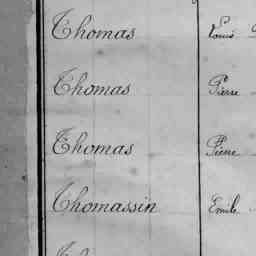 Thomas Louis
Thomas Pierre
Thomas Pierre
Thomassin Emile